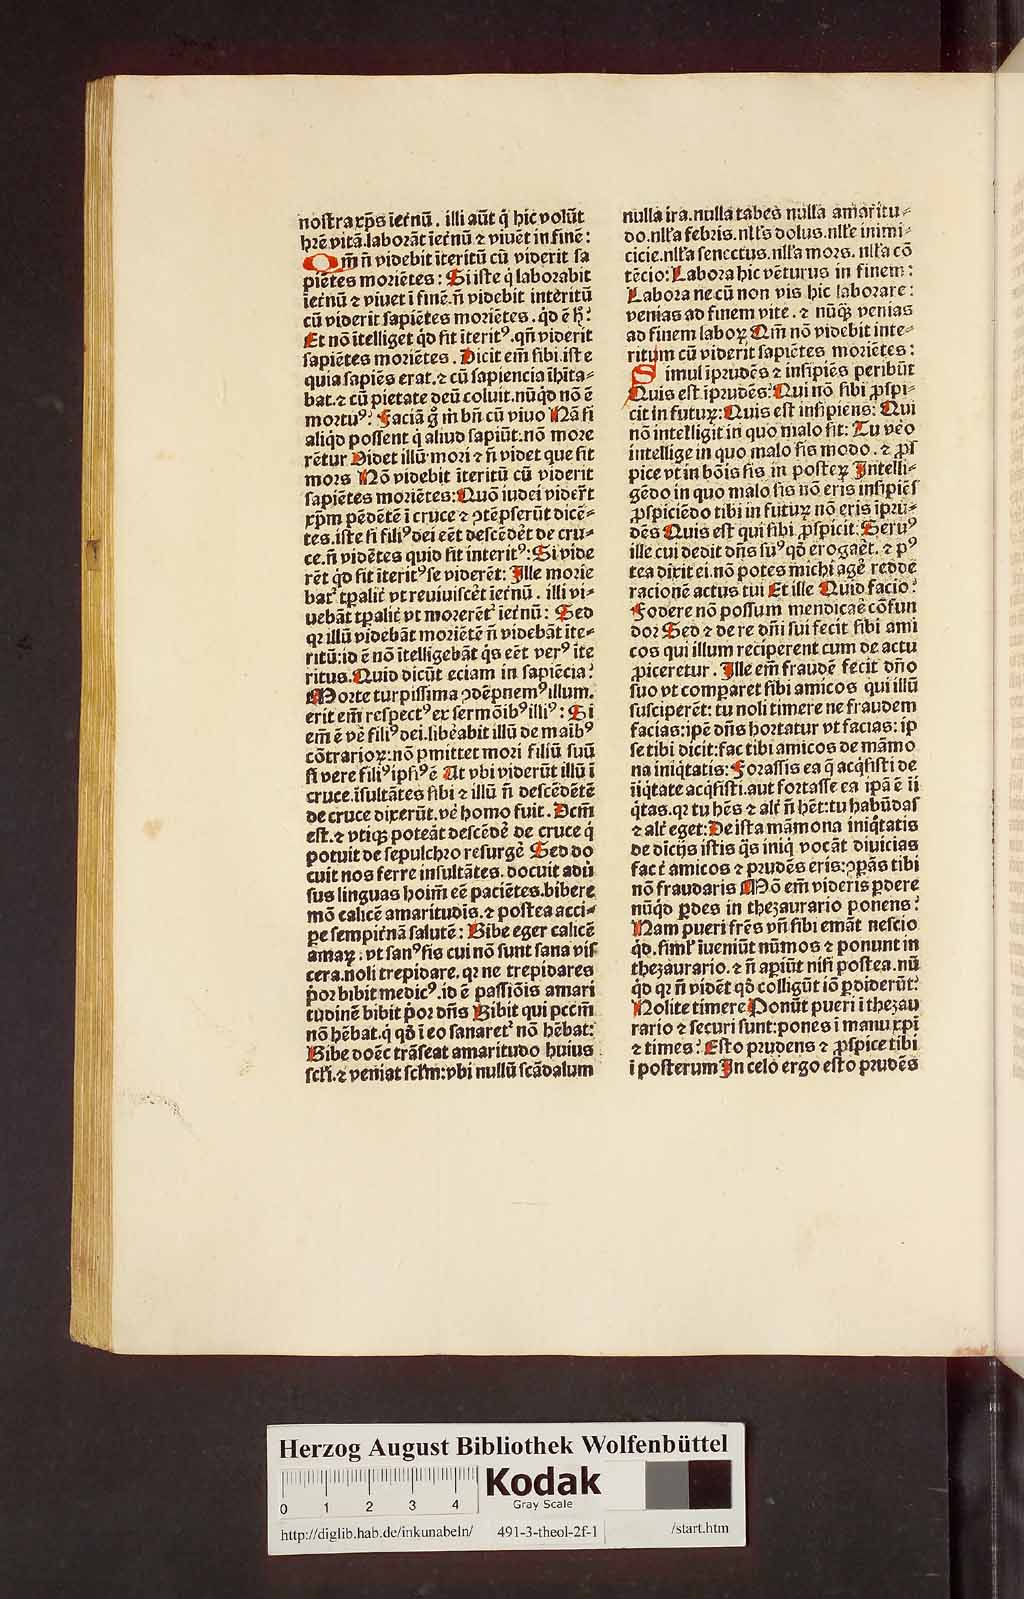 nostra xp̄s īet̄nū . illi aūt q̄ hic volūt
hr̄e vitā.laborāt īet̄nū ⁊ viuēt in finē:
Qm̄ n̄ videbit īteritū cū viderit sa
piētes moriētes: Si iste q̄ laborabit
īet̄nū ⁊ viuet ī finē.n̄ videbit interitū
cū viderit sapiētes moriētes. q̇d ē
Et nō ītelliget q̇d sit īteritꝰ. qn̄ viderit
sapiētes moriētes . Dicit em̄ sibi.iste
quia sapiēs erat.⁊ cū sapiencia īhīta-
bat.⁊ cū pietate deū coluit.nūq̇d nō ē
mortuꝰ: Faciā g̊ m̄ bn̄ cū viuo Nā si
aliq̇d possent q̄ aliud sapiūt.nō more
rētur Videt illū mori ⁊ n̄ videt que sit
mors Nō videbit īteritū cū viderit
sapiētes moriētes: Quō iudei vider̄t
xp̄m pēdētē ī cruce ⁊ ꝯtēpserūt dicē-
tes.iste si filiꝰ dei eēt descēdēt de cru-
ce.n̄ vidētes quid sit interitꝰ: Si vide
rēt q̇d sit īteritꝰ se viderēt: Ille morie
bat᷑ tꝑalit᷑ vt reuiuiscēt īet̄nū . illi vi-
uebāt tꝑalit᷑ vt morerēt᷑ īet̄nū: Sed
qꝛ illū videbāt moriētē n̄ videbāt īte-
ritū:id ē nō ītelligebāt q̇s eēt verꝰ īte
ritus. Quid dicūt eciam in sapiēcia:
Morte turpissima ꝯdēpnemꝰ illum.
erit em̄ respectꝰ ex sermōibꝰ illiꝰ: Si
em̄ ē vē filiꝰ dei.libēabit illū de maībꝰ
cōtrarioꝝ:nō pmittet mori filiū suū
si vere filiꝰ ipsiꝰ ē At vbi viderūt illū ī
cruce.īsultātes sibi ⁊ illū n̄ descēdētē
de cruce dixerūt.vē homo fuit. Dcm̄
est.⁊ vtiqꝫ poteāt descēdē de cruce q̄
potuit de sepulchro resurgē Sed do
cuit nos ferre insultātes. docuit adū
sus linguas hoim̄ eē paciētes.bibere
mō calicē amaritudis.⁊ postea acci-
pe sempit̄nā salutē: Bibe eger calicē
amaꝝ: vt sanꝰ sis cui nō sunt sana vis
cera.noli trepidare. qꝛ ne trepidares
p̄or bibit medicꝰ.id ē passiōis amari
tudinē bibit p̄or dn̄s Bibit qui pcc̄m
nō hēbat.q̄ qd̄ ī eo sanaret᷑ nō hēbat:
Bibe doēc trāseat amaritudo huius
scl̄i.⁊ veniat scl̄m:vbi nullū scādalum
nulla ira.nulla tabes nulla amaritu-
do.nll̄a febris.nll̄s dolus.nll̄e inimi-
cicie.nll̄a senectus.nll̄a mors. nll̄a cō
tēcio: Labora hic vēturus in finem:
Labora ne cū non vis hic laborare:
venias ad finem vite . ⁊ nūqꝫ venias
ad finem laboꝝ Qm̄ nō videbit inte-
ritum cū viderit sapiētes moriētes:
Simul īprudēs ⁊ insipiēs peribūt
Quis est īprudēs: Qui nō sibi ꝓspi-
cit in futuꝝ: Quis est insipiens: Qui
nō intelligit in quo malo sit: Tu v̄eo
intellige in quo malo sis modo. ⁊ ꝓs
pice vt in bōis sis in posteꝝ Intelli-
gēdo in quo malo sis nō eris insipiēs
ꝓspiciēdo tibi in futuꝝ nō eris īpru-
dēs Quis est qui sibi ꝓspicit. Seruꝰ
ille cui dedit dn̄s suꝰ qd̄ erogaēt. ⁊ pꝰ
tea dixit ei.nō potes michi agē reddē
racionē actus tui Et ille Quid facio:
Fodere nō possum mendicaē cōfun
dor Sed ⁊ de re dn̄i sui fecit sibi ami
cos qui illum reciperent cum de actu
ꝓiceretur . Ille em̄ fraudē fecit dn̄o
suo vt compararet sibi amicos qui illū
susciperēt: tu noli timere ne fraudem
facias:ipē dn̄s hortatur vt facias: ip
se tibi dicit:fac tibi amicos de māmo
na iniq̇tatis: Forassis ea q̄ acq̇sisti de
īiq̇tate acq̇sisti.aut fortasse ea ipā ē īi
q̇tas.qꝛ tu hēs ⁊ alt᷑ n̄ hēt:tu habūdas
⁊ alt᷑ eget: De ista māmona iniq̇tatis
de dictjs istis q̇s iniq̇ vocāt diuicias
fac t᷑ amicos ⁊ prudēs eris:ꝯpās tibi
nō fraudaris Mō em̄ videris ꝑdere
nūq̇d ꝑdes in thezaurario ponens:
Nam pueri frēs vn̄ sibi emāt nescio
q̇d. siml᷑ īueniūt nūmos ⁊ ponunt in
thezaurario. ⁊ n̄ apiūt nisi postea.nū
q̇d qꝛ n̄ vidēt qd̄ colligūt iō ꝑdiderūt:
Nolite timere Ponūt pueri ī thezau
rario ⁊ securi sunt:pones ī manu xp̄i
⁊ times: Esto prudens ⁊ ꝓspice tibi
ī posterum In celo ergo esto prudēs
Herzog August Bibliothek Wolfenbüttel
0 1 2 3 4
Kodak
Gray Scale
http://diglib.hab.de/inkunabeln/ 491-3-theol-2f-1 /start.htm